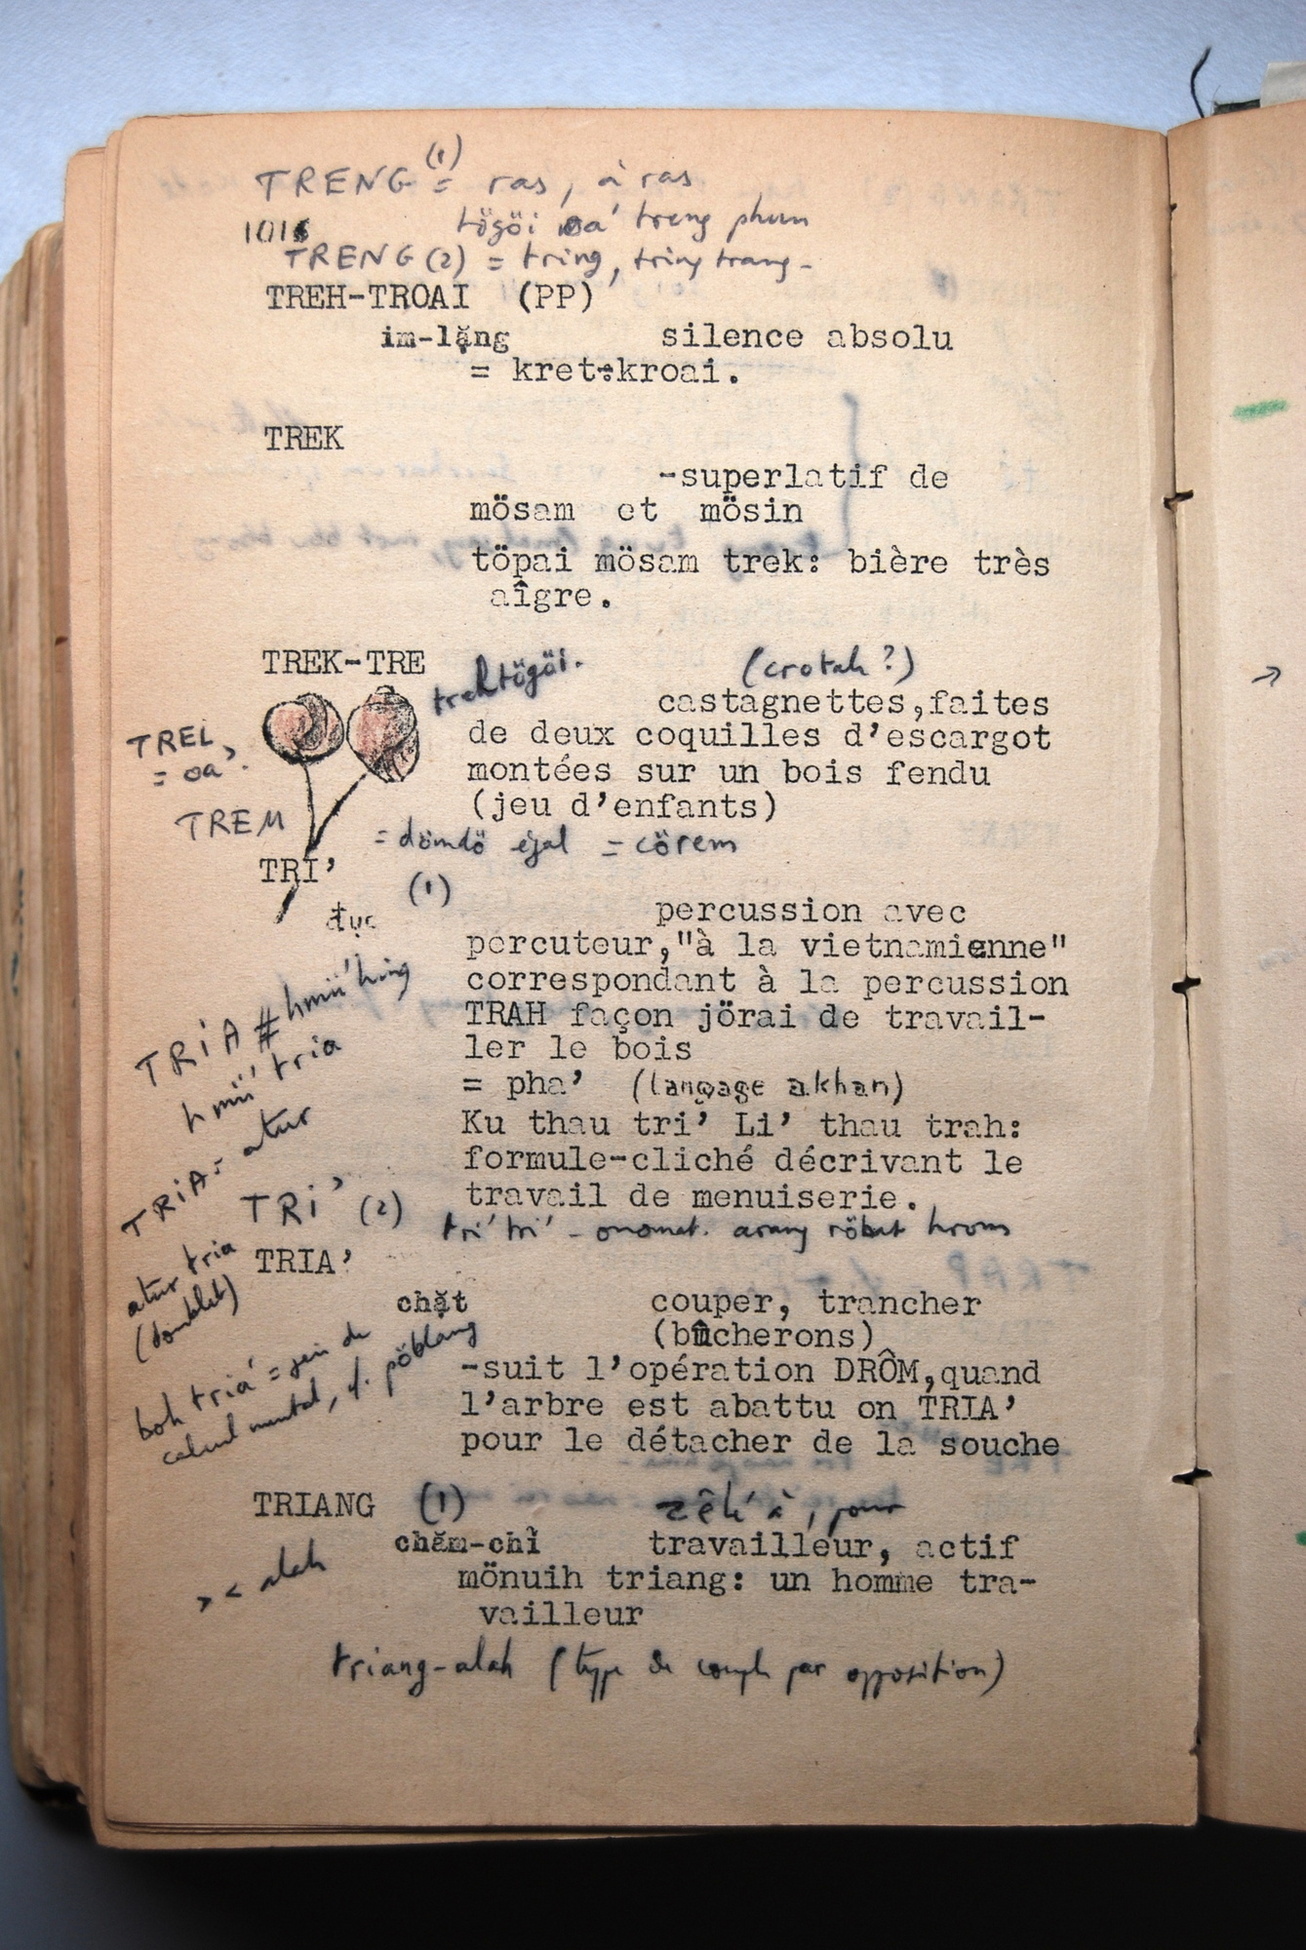 TRENG (1) = ras, à ras
1016
tögöi oa' treng phun
TRENG (2) = tring, tring trang-
TREH-TROAI (PP)
im-lặng silence absolu
= kret-kroai.
TREK
-superlatif de
mösam et mösin
töpai mösam trek: bière très
aîgre.
TREK-TRE trektögöi. (crotale?)
castagnettes,faites
de deux coquilles d'escargot
montées sur un bois fendu
(jeu d'enfants)
TREL
= oa'.
TREM = dömdö égal = cörem
TRI' (1)
đục percussion avec
percuteur,"à la vietnamienne"
correspondant à la percussion
TRAH façon jörai de travail-
ler le bois
= pha' (langage akhan)
Ku thau tri' Li' thau trah:
formule-cliché décrivant le
travail de menuiserie.
TRIA # hmư' hing
hmư' tria
TRIA = atur
atur tria
(doublet)
TRI' (2) tri' tri' - onomat. arang röbat hrom
TRIA'
chặt couper, trancher
(bûcherons)
-suit l'opération DRÔM,quand
l'arbre est abattu on TRIA'
pour le détacher de la souche
boh tria' = jeu de
calcul mental, cf. pöblang
TRIANG (1) zélé à, pour
chăm-chỉ travailleur, actif
> < alah
mönuih triang: un homme tra-
vailleur
triang-alah (type de couple par opposition)